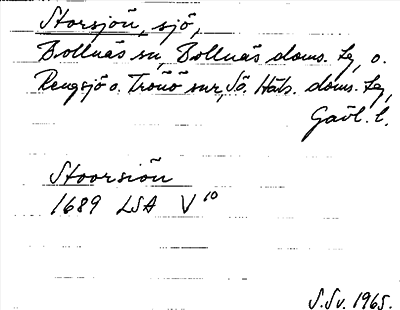 Storsjön, sjö,
Bollnäs sn, Bollnäs doms. tg, o.
Rengsjö o. Trönö snr, Sö. Häls. doms. tg,
Gävl. l.
Stoorsiön
1689 LSA V 10
S. Sv. 1965.